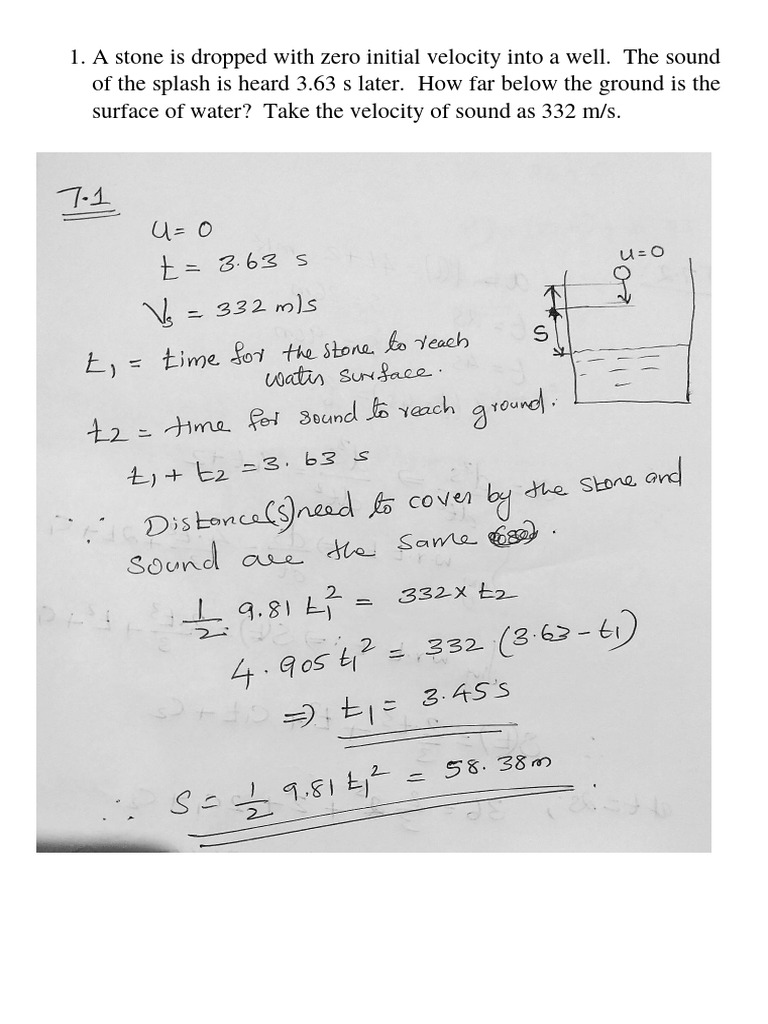 1. A stone is dropped with zero initial velocity into a well. The sound
of the splash is heard 3.63 s later. How far below the ground is the
surface of water? Take the velocity of sound as 332 m/s.
7.1
u = 0
t = 3.63 s
Vs = 332 m/s
u=0
S
t1 = time for the stone to reach
water surface.
t2 = time for sound to reach ground.
t1 + t2 = 3.63 s
∴ Distance(s) need to cover by the stone and
sound are the same .
1/2 9.81 t1² = 332 x t2
4.905 t1² = 332 (3.63 - t1)
⇒ t1 = 3.45 s
∴ S = 1/2 9.81 t1² = 58.38m